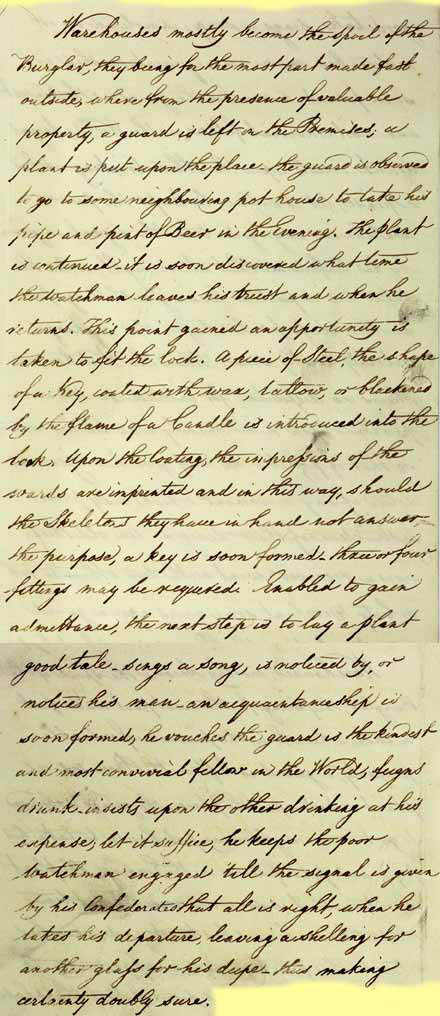 Warehouses mostly become the spoil of the
Burglar, they being for the most part made fast
outside, where from the presence of valuable
property, a guard is left on the Premises; a
plant is put upon the place - the guard is observed
to go to some neighbouring pot house to take his
pipe and pint of Beer in the Evening. The plant
is continued - it is soon discovered what time
the Watchman leaves his trust and when he
returns. This point gained an opportunity is
taken to fit the lock. A piece of Steel, the shape
of a Key, coated with wax, tallow, or blackened
by the flame of a Candle is introduced into the
lock. Upon the Coating, the impressions of the
wards are imprinted and in this way, should
the Skeletons they have in hand not answer
the purpose, a key is soon formed - three or four
fittings may be required. Enabled to gain
admittance, the next step is to lay a plant
good tale - sings a song, is noticed by, or
notices his man - an acquaintanceship is
soon formed, he vouches the guard is the kindest
and most convivial fellow in the World, feigns
drunk - insists upon the other drinking at his
expense, let it suffice, he keeps the poor
Watchman engaged 'till the signal is given
by his Confederates that all is right, when he
takes his departure, leaving a shilling for
another glass for his dupe - thus making
certainty doubly sure.